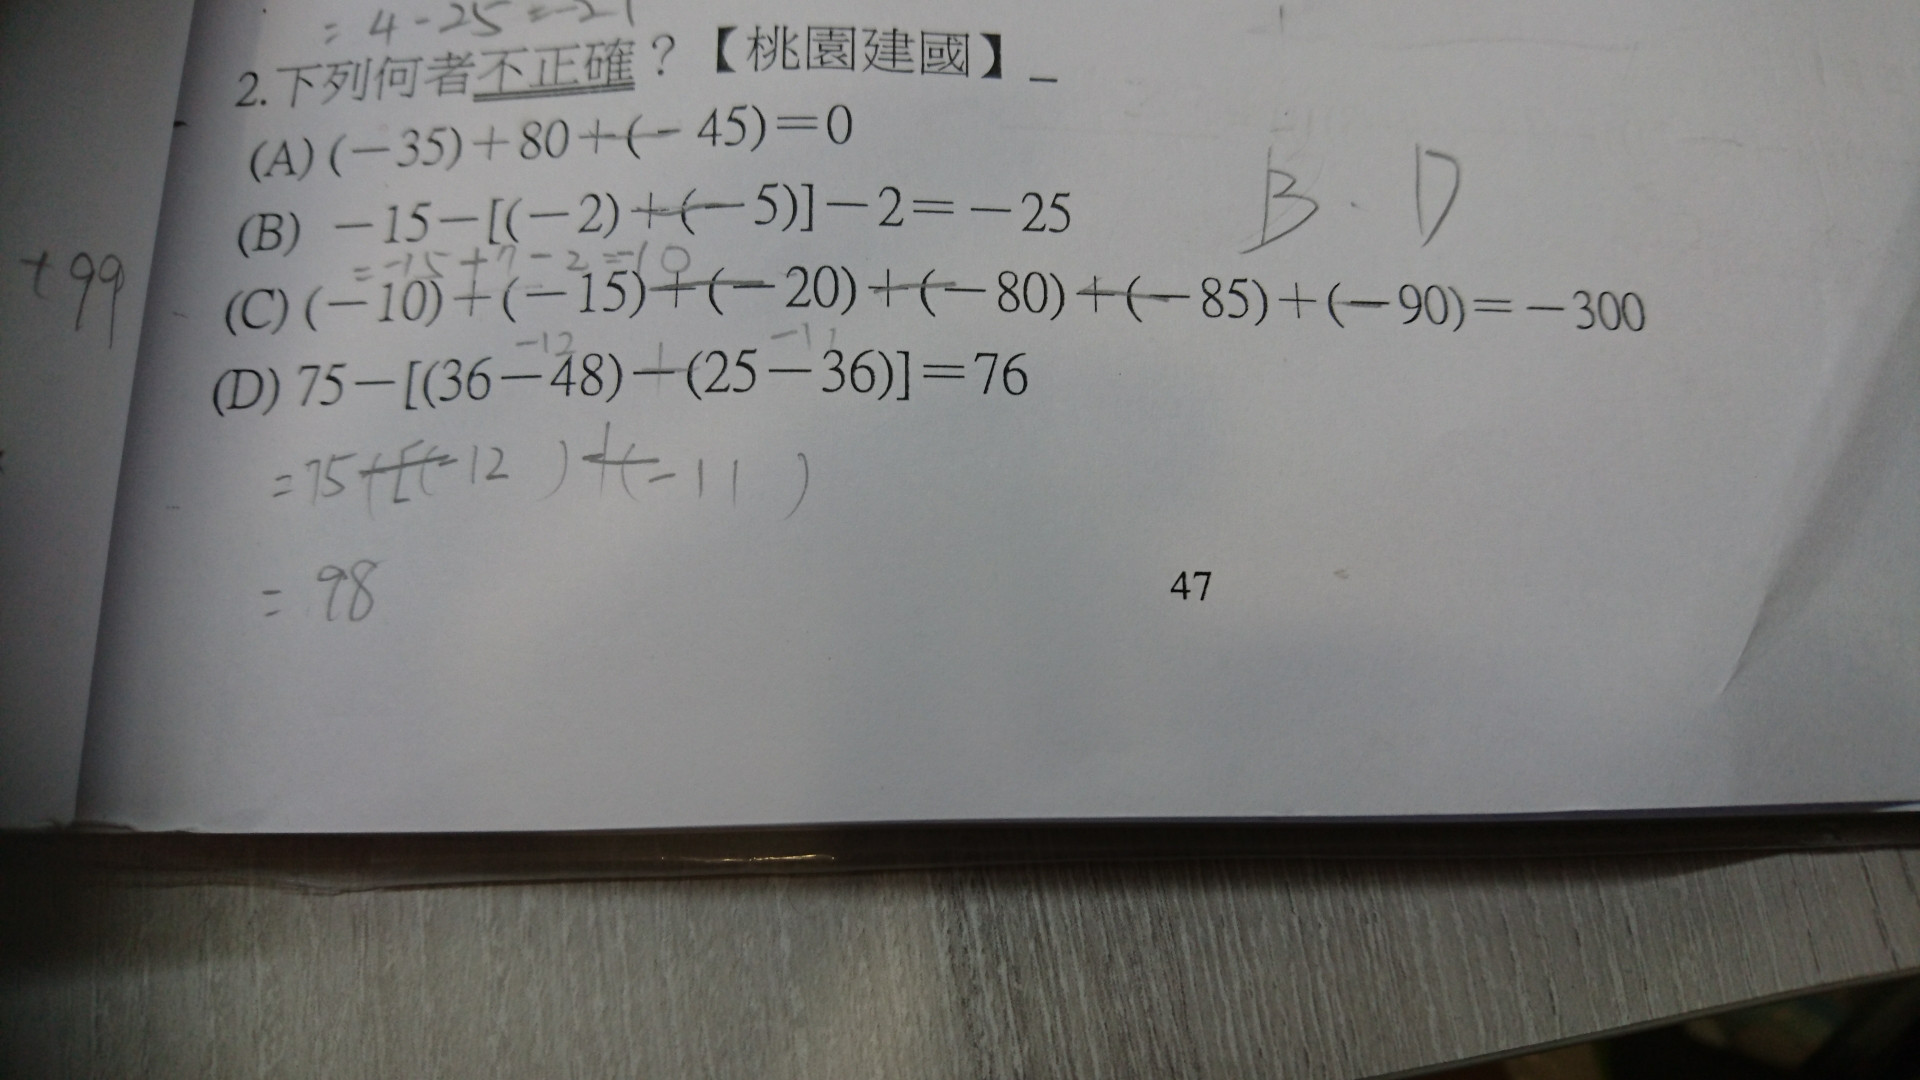 = 4 - 25 = -21
2.下列何者不正確？【桃園建國】_
(A) (－35)＋80＋(－45)＝0
(B) －15－[(－2)＋(－5)]－2＝－25
= -15 + 7 - 2 = -10
B . D
+99
(C) (－10)＋(－15)＋(－20)＋(－80)＋(－85)＋(－90)＝－300
-12 -11
(D) 75－[(36－48)－(25－36)]＝76
= 75 + [(-12) + (-11)
= 98
47